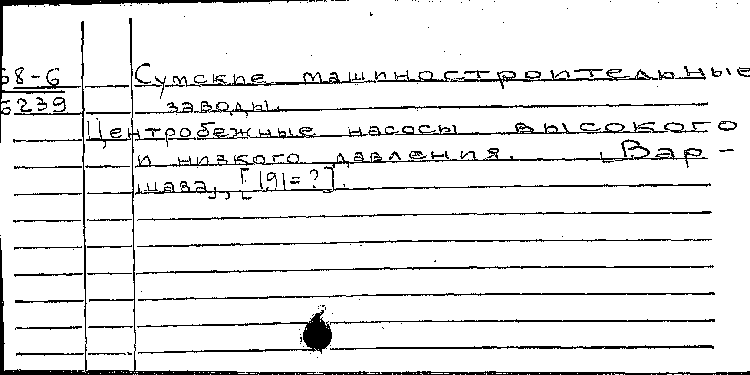 68-6
6239
Сумские машиностроительные
заводы.
Центробежные насосы высокого
и низкого давления. Вар-
шава, [191=?].